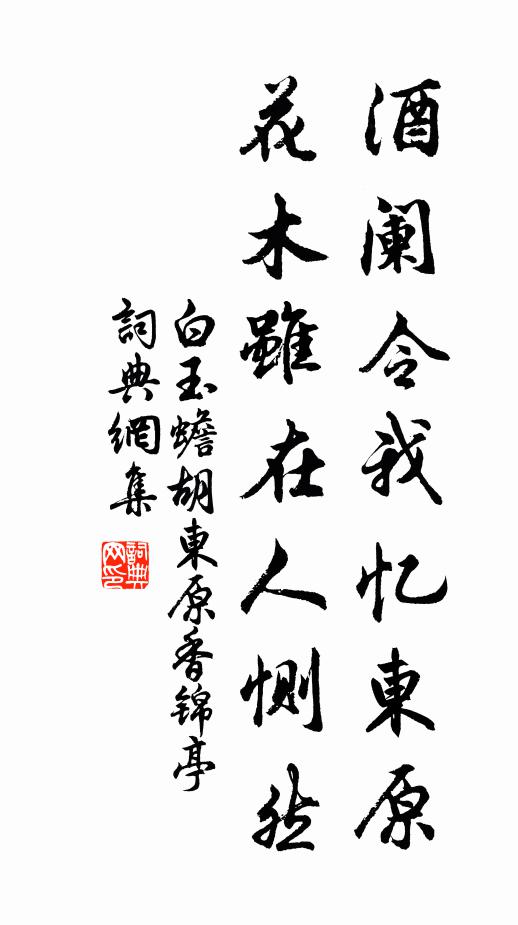 酒阑令我忆東原
花木雖在人惻然
白玉蟾胡東原香锦亭
詞典網集
詞典网印